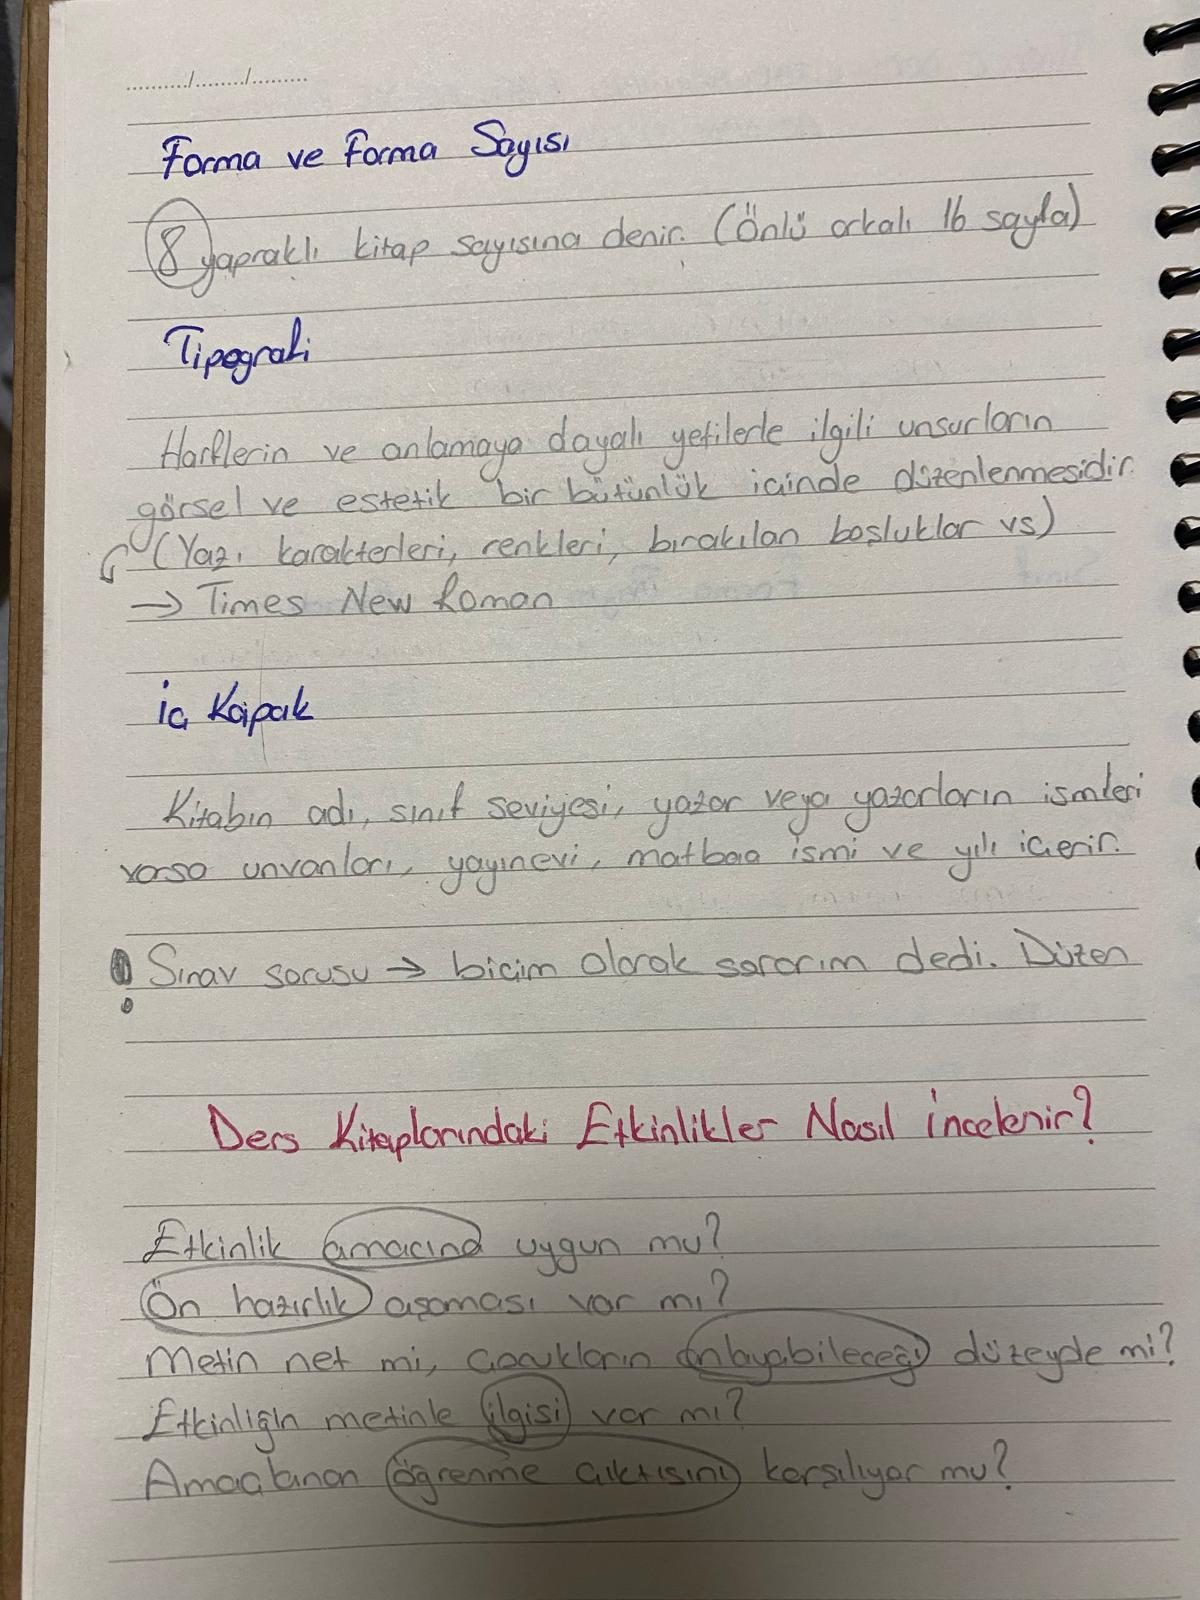 ........../......../.........
Forma ve Forma Sayısı
8 yapraklı kitap sayısına denir. (Önlü arkalı 16 sayfa)
Tipografi
Harflerin ve anlamaya dayalı yetilerle ilgili unsurların
görsel ve estetik bir bütünlük içinde düzenlenmesidir.
(Yazı karakterleri, renkleri, bırakılan boşluklar vs)
→ Times New Roman
İç Kapak
Kitabın adı, sınıf seviyesi, yazar veya yazarların ismleri
varsa unvanları, yayınevi, matbaa ismi ve yılı içerir.
! Sınav sorusu → biçim olarak sorarım dedi. Düzen
Ders Kitaplarındaki Etkinlikler Nasıl İncelenir?
Etkinlik amacına uygun mu?
Ön hazırlık aşaması var mı?
Metin net mi, çocukların anlayabileceği düzeyde mi?
Etkinliğin metinle ilgisi var mı?
Amaçlanan öğrenme çıktısını karşılıyor mu?